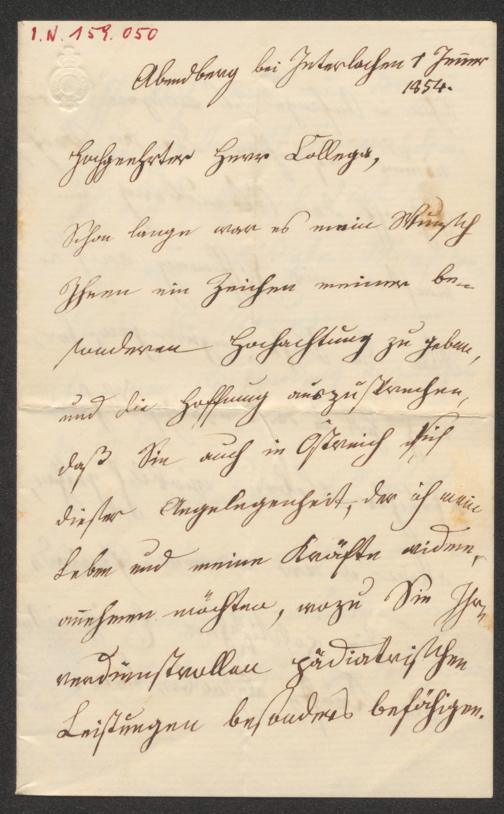 I.N. 159.050
Abendberg bei Interlachen 1 Jenner
1854.
Hochgeehrter Herr Collega,
Schon lange war es mein Wunsch
Ihnen ein Zeichen meiner be-
sonderen Hochachtung zu geben,
und die Hoffnung auszusprechen,
daß Sie auch in Östreich sich
dieser Angelegenheit, der ich mein
Leben und meine Kräfte widme,
annehmen möchten, wozu Sie Ihre
verdienstvollen pädiatrischen
Leistungen besonders befähigen.